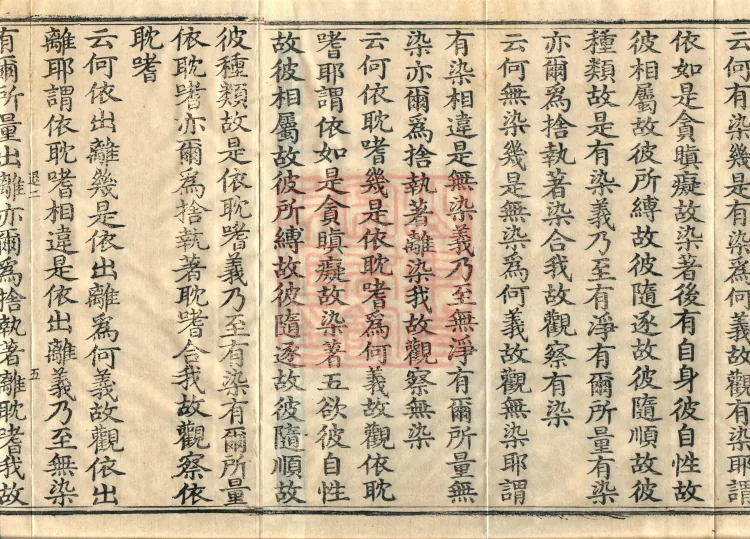 云何有染幾是有染爲何義故觀有染耶謂
依如是貪瞋癡故染著後有自身彼自性故
彼相屬故彼所縛故彼隨逐故彼隨順故彼
種類故是有染義乃至有淨有爾所量有染
亦爾爲捨執著染合我故觀察有染
云何無染幾是無染爲何義故觀無染耶謂
有染相違是無染義乃至無淨有爾所量無
染亦爾爲捨執著離染我故觀察無染
云何依耽嗜幾是依耽嗜爲何義故觀依耽
嗜耶謂依如是貪瞋癡故染著五欲彼自性
故彼相屬故彼所縛故彼隨逐故彼隨順故
彼種類故是依耽嗜義乃至有染有爾所量
依耽嗜亦爾爲捨執著耽嗜合我故觀察依
耽嗜
云何依出離幾是依出離爲何義故觀依出
離耶謂依耽嗜相違是依出離義乃至無染
五
有爾所量出離亦爾爲捨執著離耽嗜我故